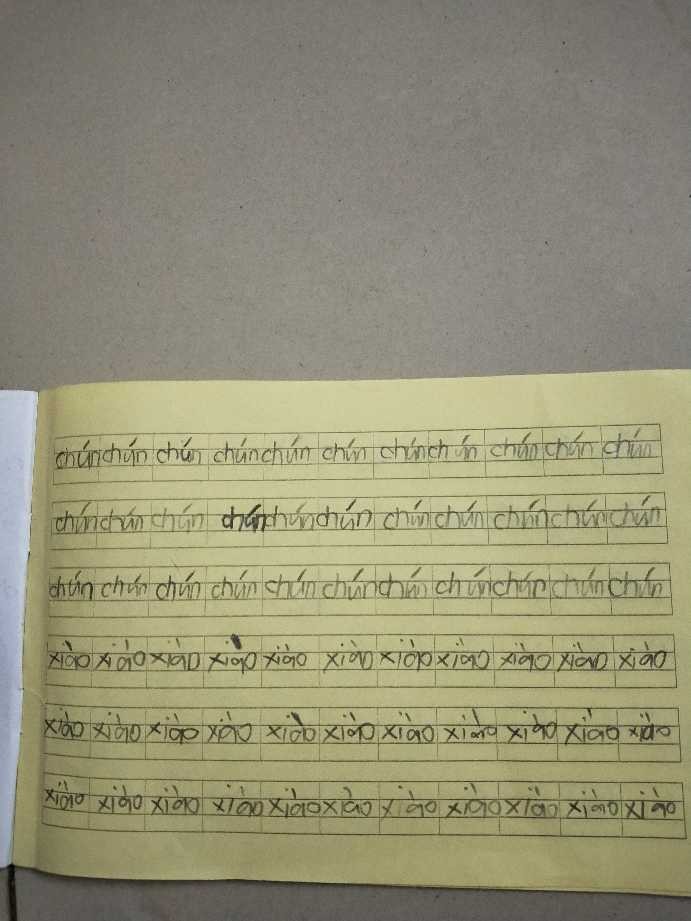 chún chún chún chún chún chún chún chún chún chún chún
chún chún chún chún chún chún chún chún chún chún chún
chún chún chún chún chún chún chún chún chún chún chún
xiào xiào xiào xiào xiào xiào xiào xiào xiào xiào xiào
xiào xiào xiào xiào xiào xiào xiào xiào xiào xiào xiào
xiào xiào xiào xiào xiào xiào xiào xiào xiào xiào xiào